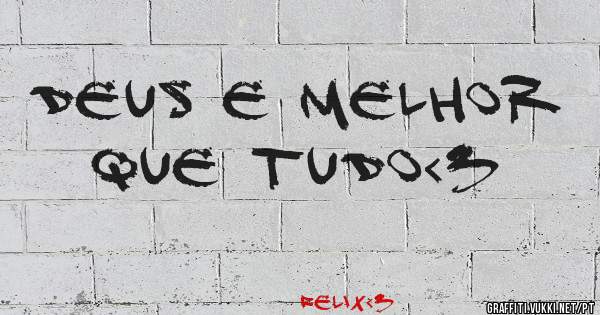 DEUS E MELHOR
QUE TUDO<3
FELIX<3
GRAFFITI.VUKKI.NET/PT